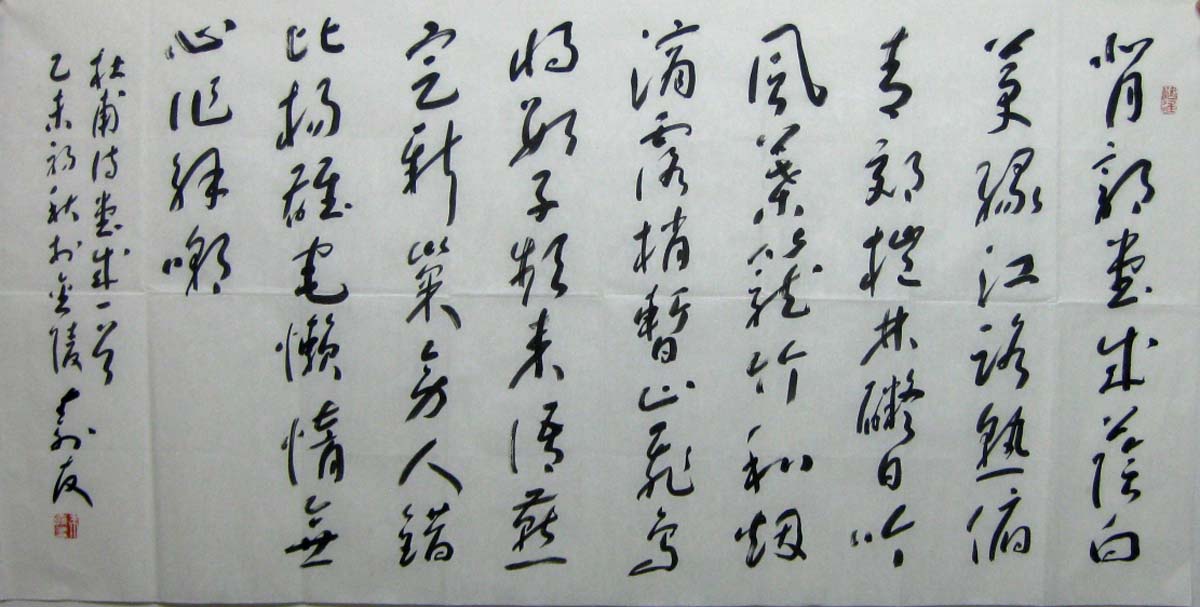 背郭堂成蔭白
茅緣江路熟俯
青郊榿林礙日吟
風葉籠竹和烟
滴露梢暫止飛烏
將數子頻來語燕
定新巢旁人錯
比揚雄宅懶惰無
心作解嘲
杜甫詩堂成一首
乙未初秋於金陵